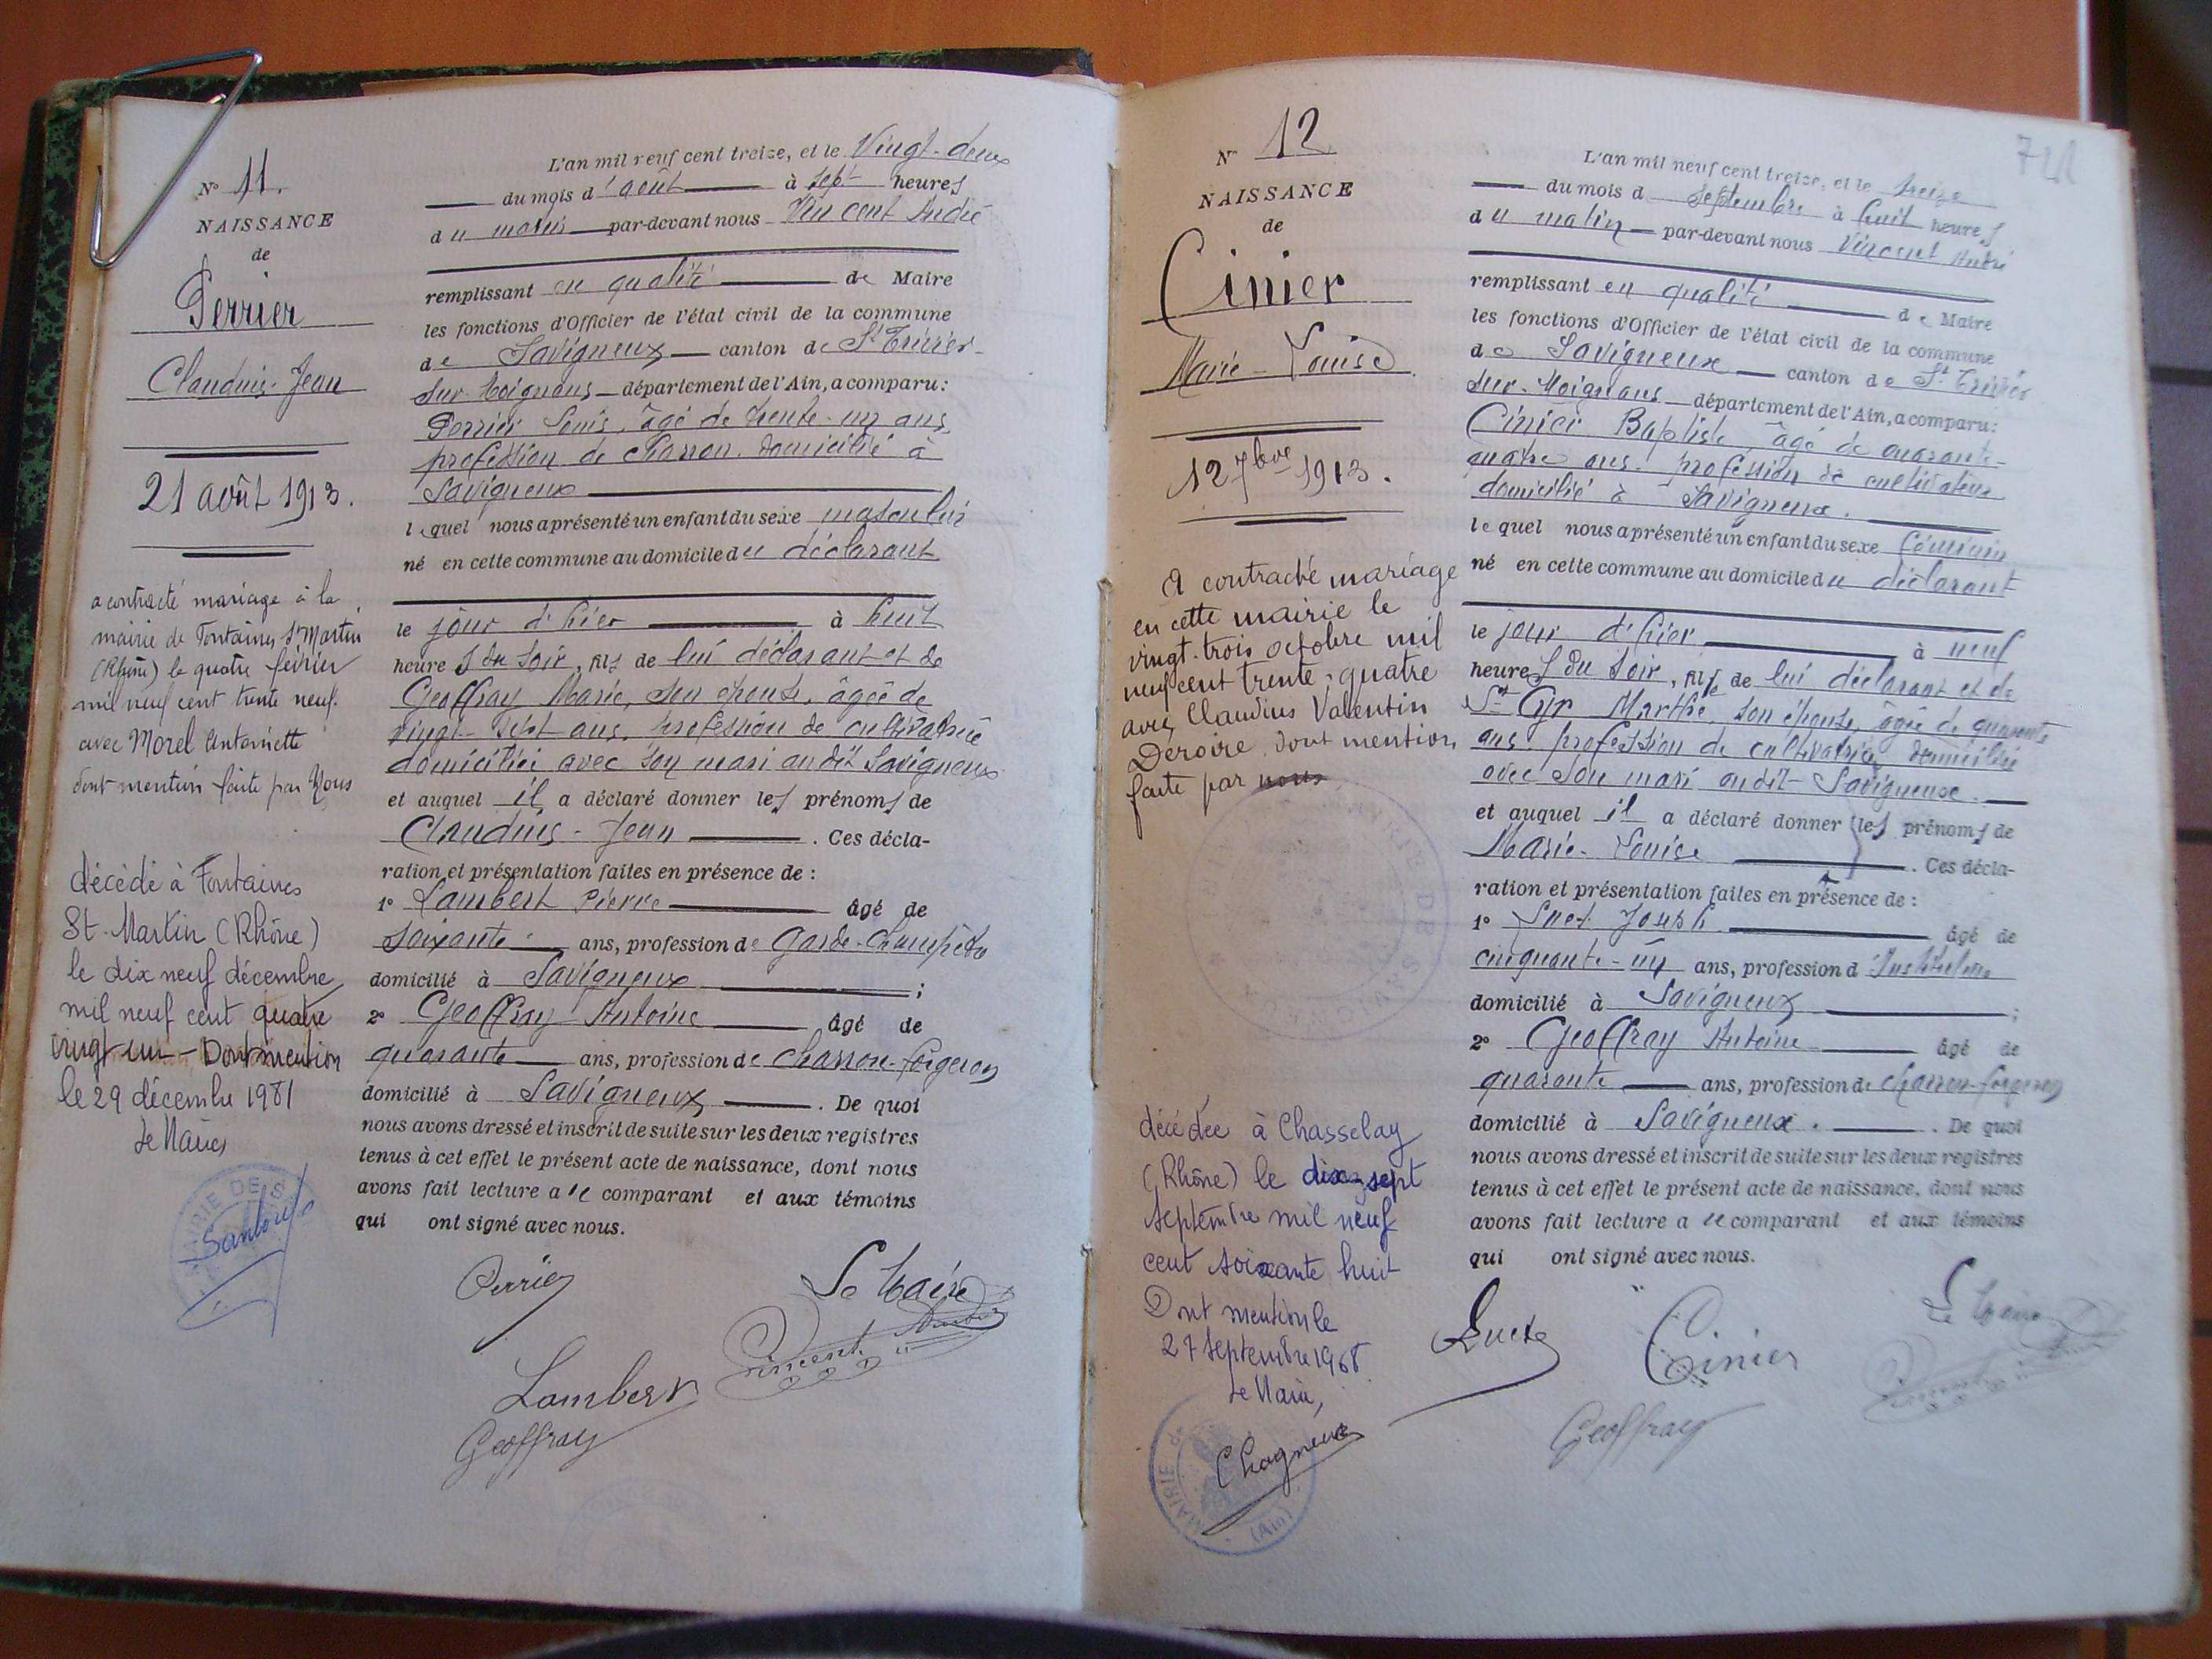 N° 11.
NAISSANCE
de
Perrier
Claudius-Jean
21 août 1913.
a contracté mariage à la
mairie de Fontaines St Martin
(Rhône) le quatre février
mil neuf cent trente neuf.
avec Morel Antoinette
dont mention faite par Nous
décédé à Fontaines
St-Martin (Rhône)
le dix neuf décembre
mil neuf cent quatre
vingt un - Dont mention
le 29 décembre 1981
Le Maire,
L'an mil neuf cent treize, et le Vingt-deux
du mois d'août à sept heures
du matin par-devant nous Vincent André
remplissant en qualité de Maire
les fonctions d'Officier de l'état civil de la commune
de Savigneux canton de St Trivier-
sur-Moignans département de l'Ain, a comparu:
Perrier Louis, âgé de trente-un ans,
profession de charron, domicilié à
Savigneux
lequel nous a présenté un enfant du sexe masculin
né en cette commune au domicile du déclarant
le jour d'hier à huit
heures du soir, fils de lui déclarant et de
Geoffray Marie, son épouse, âgée de
vingt-sept ans, profession de cultivatrice
domiciliée avec son mari audit Savigneux
et auquel il a déclaré donner les prénoms de
Claudius-Jean. Ces décla-
ration et présentation faites en présence de :
1° Lambert Pierre âgé de
soixante ans, profession de Garde-Champêtre
domicilié à Savigneux ;
2° Geoffray Antoine âgé de
quarante ans, profession de charron-forgeron
domicilié à Savigneux. De quoi
nous avons dressé et inscrit de suite sur les deux registres
tenus à cet effet le présent acte de naissance, dont nous
avons fait lecture a le comparant et aux témoins
qui ont signé avec nous.
Perrier
Le Maire
Vincent André
Lambert
Geoffray
N° 12
NAISSANCE
de
Cinier
Marie-Louise
12 7bre 1913.
A contracté mariage
en cette mairie le
vingt-trois octobre mil
neuf cent trente-quatre
avec Claudius Valentin
Deroire, dont mention
faite par nous
décédée à Chasselay
(Rhône) le dix-sept
septembre mil neuf
cent soixante huit
Dont mention le
27 septembre 1968
Le Maire,
Chagneux
MAIRIE de
(Ain)
L'an mil neuf cent treize, et le treize
du mois de Septembre à huit heures
du matin par-devant nous Vincent André
remplissant en qualité de Maire
les fonctions d'Officier de l'état civil de la commune
de Savigneux canton de St Trivier
sur-Moignans département de l'Ain, a comparu:
Cinier Baptiste, âgé de quarante-
quatre ans, profession de cultivateur
domicilié à Savigneux.
lequel nous a présenté un enfant du sexe féminin
né en cette commune au domicile du déclarant
le jour d'hier à neuf
heures du soir, fils de lui déclarant et de
St Cyr Marthe, son épouse, âgée de quarante
ans, profession de cultivatrice domiciliée
avec son mari audit Savigneux.
et auquel il a déclaré donner les prénoms de
Marie-Louise. Ces décla-
ration et présentation faites en présence de :
1° Suet Joseph âgé de
cinquante-un ans, profession d'Instituteur
domicilié à Savigneux ;
2° Geoffray Antoine âgé de
quarante ans, profession de charron-forgeron
domicilié à Savigneux. De quoi
nous avons dressé et inscrit de suite sur les deux registres
tenus à cet effet le présent acte de naissance, dont nous
avons fait lecture a le comparant et aux témoins
qui ont signé avec nous.
Le Maire
Suet
Cinier
Geoffray